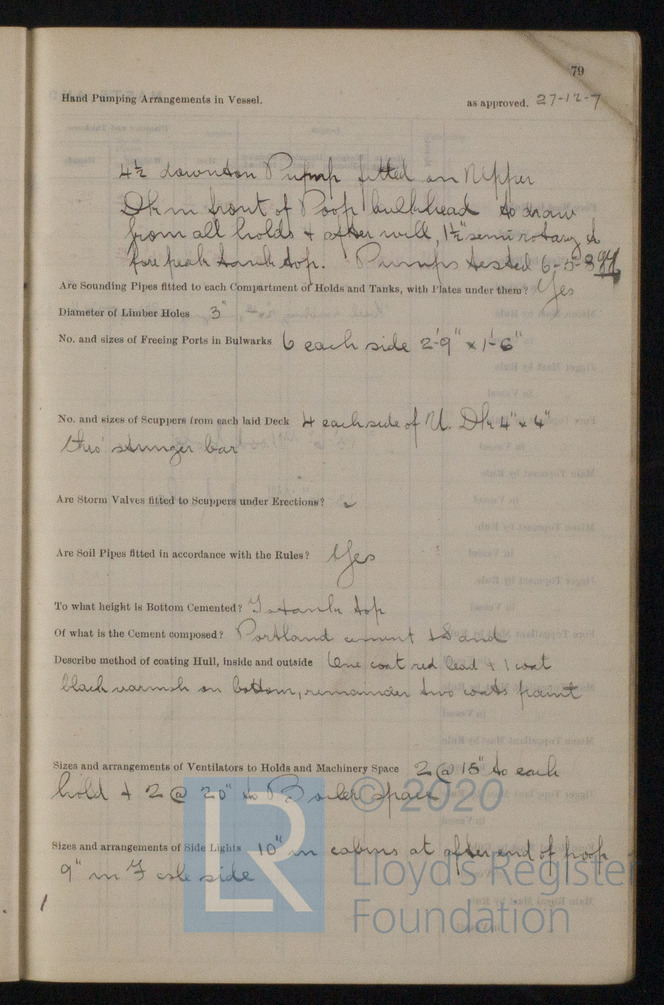 79
Hand Pumping Arrangements in Vessel. as approved. 27-12-7
4½ downton Pump fitted on Upper
Dk in front of Poop bulkhead to draw
from all holds & after well, 1½" semi rotary
for peak tank top. Pumps tested 6-5-8
Are Sounding Pipes fitted to each Compartment of Holds and Tanks, with Plates under them? Yes
Diameter of Limber Holes 3"
No. and sizes of Freeing Ports in Bulwarks 6 each side 2'-9" x 1'-6"
No. and sizes of Scuppers from each laid Deck 4 each side of U. Dk 4" x 4"
thro' stringer bar
Are Storm Valves fitted to Scuppers under Erections?
Are Soil Pipes fitted in accordance with the Rules? Yes
To what height is Bottom Cemented? To tank top
Of what is the Cement composed? Portland cement & Sand
Describe method of coating Hull, inside and outside One coat red lead & 1 coat
black varnish on bottom, remainder two coats paint
Sizes and arrangements of Ventilators to Holds and Machinery Space 2 @ 15" to each
hold & 2 @ 20" to Boiler space
Sizes and arrangements of Side Lights 10" in cabins at after end of poop
9" in F'csle side
LR
© 2020
Lloyd's Register
Foundation